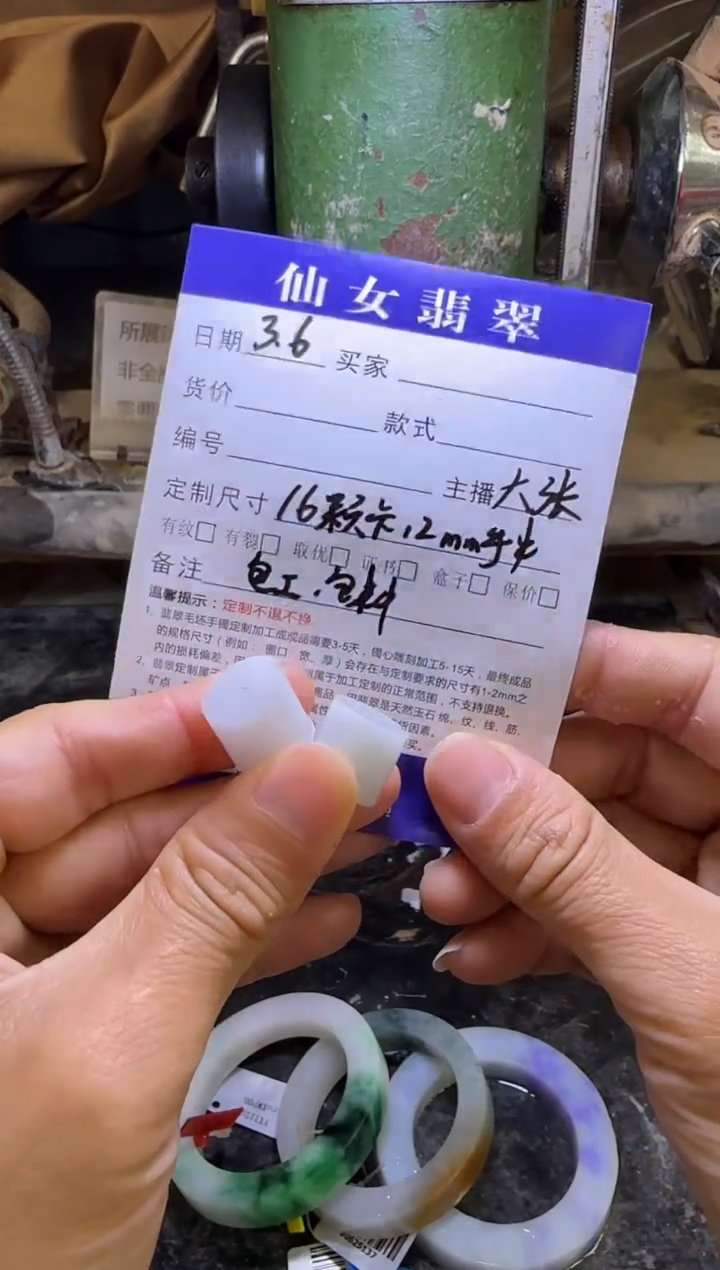 仙女翡翠
日期 3.6 买家
货价 款式
编号 主播 大张
定制尺寸 16颗卡12mm手串
有纹□ 有裂□ 取优□ 证书□ 盒子□ 保价□
备注 包工.包料
温馨提示：定制不退不换
1、翡翠毛坯手镯定制加工成成品需要3-5天，镯心雕刻加工5-15天，最终成品
的规格尺寸（例如： 圈口 宽、厚）会存在与定制要求的尺寸有1-2mm之
内的损耗偏差，
属于加工定制的正常范围，不支持退换。
2、翡翠定制属于
商品，因翡翠是天然玉石 绵、纹、线、筋、
矿点
所展
非全